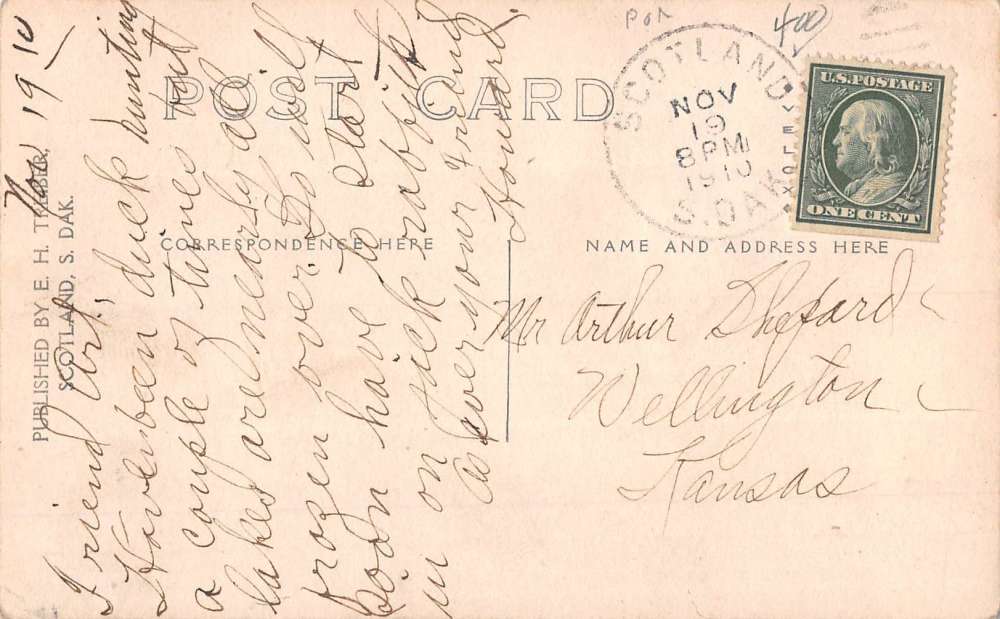 POST CARD
CORRESPONDENCE HERE
NAME AND ADDRESS HERE
PUBLISHED BY E. H. TREBER,
SCOTLAND, S. DAK.
Nov 19 10
Friend Art.
Have been duck hunting
a couple of times but
lakes are nearly all
frozen over. So will
soon have to start
in on Jack rabbits
As ever your friend
Howard.
SCOTLAND
NOV
19
8 PM
1910
S. DAK.
400
U.S. POSTAGE
ONE CENT
Mr Arthur Shepard
Wellington
Kansas